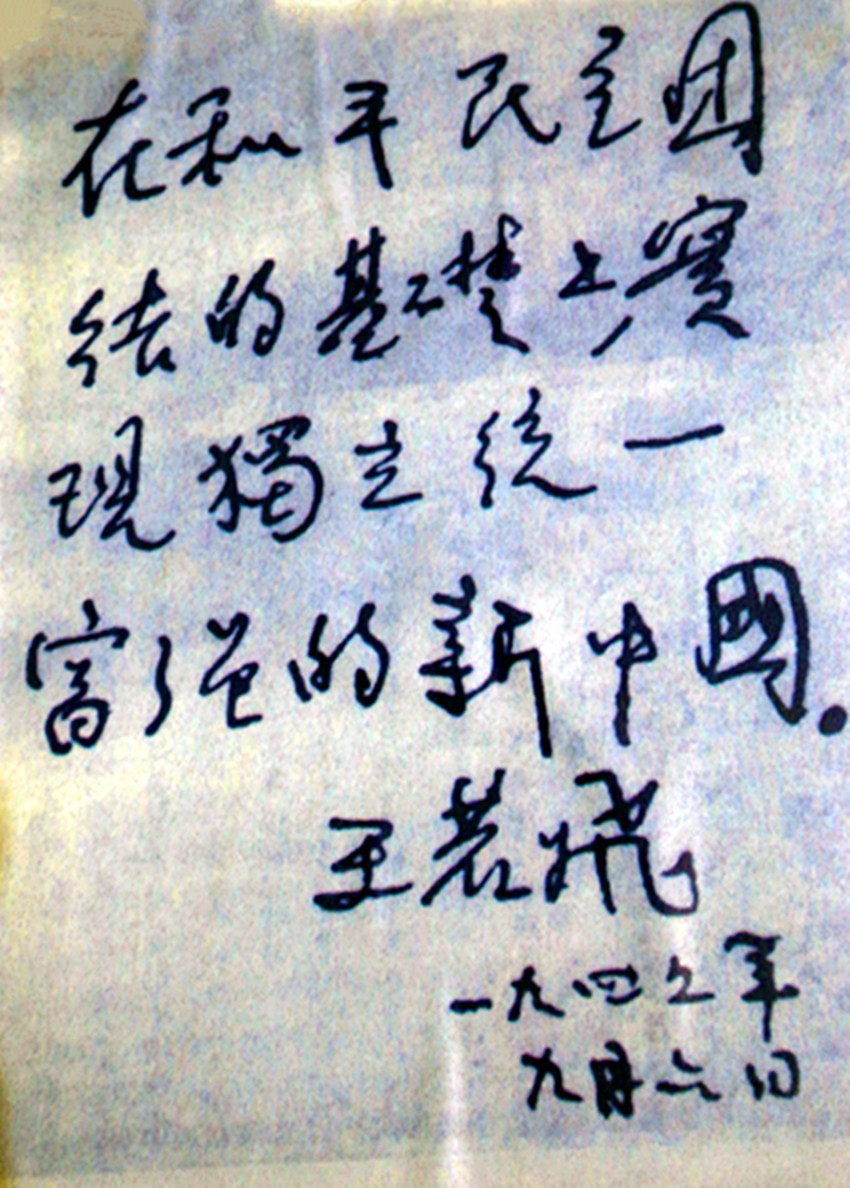 在和平民主团
结的基礎上實
現獨立统一
富强的新中國.
王若飛
一九四五年
九月六日